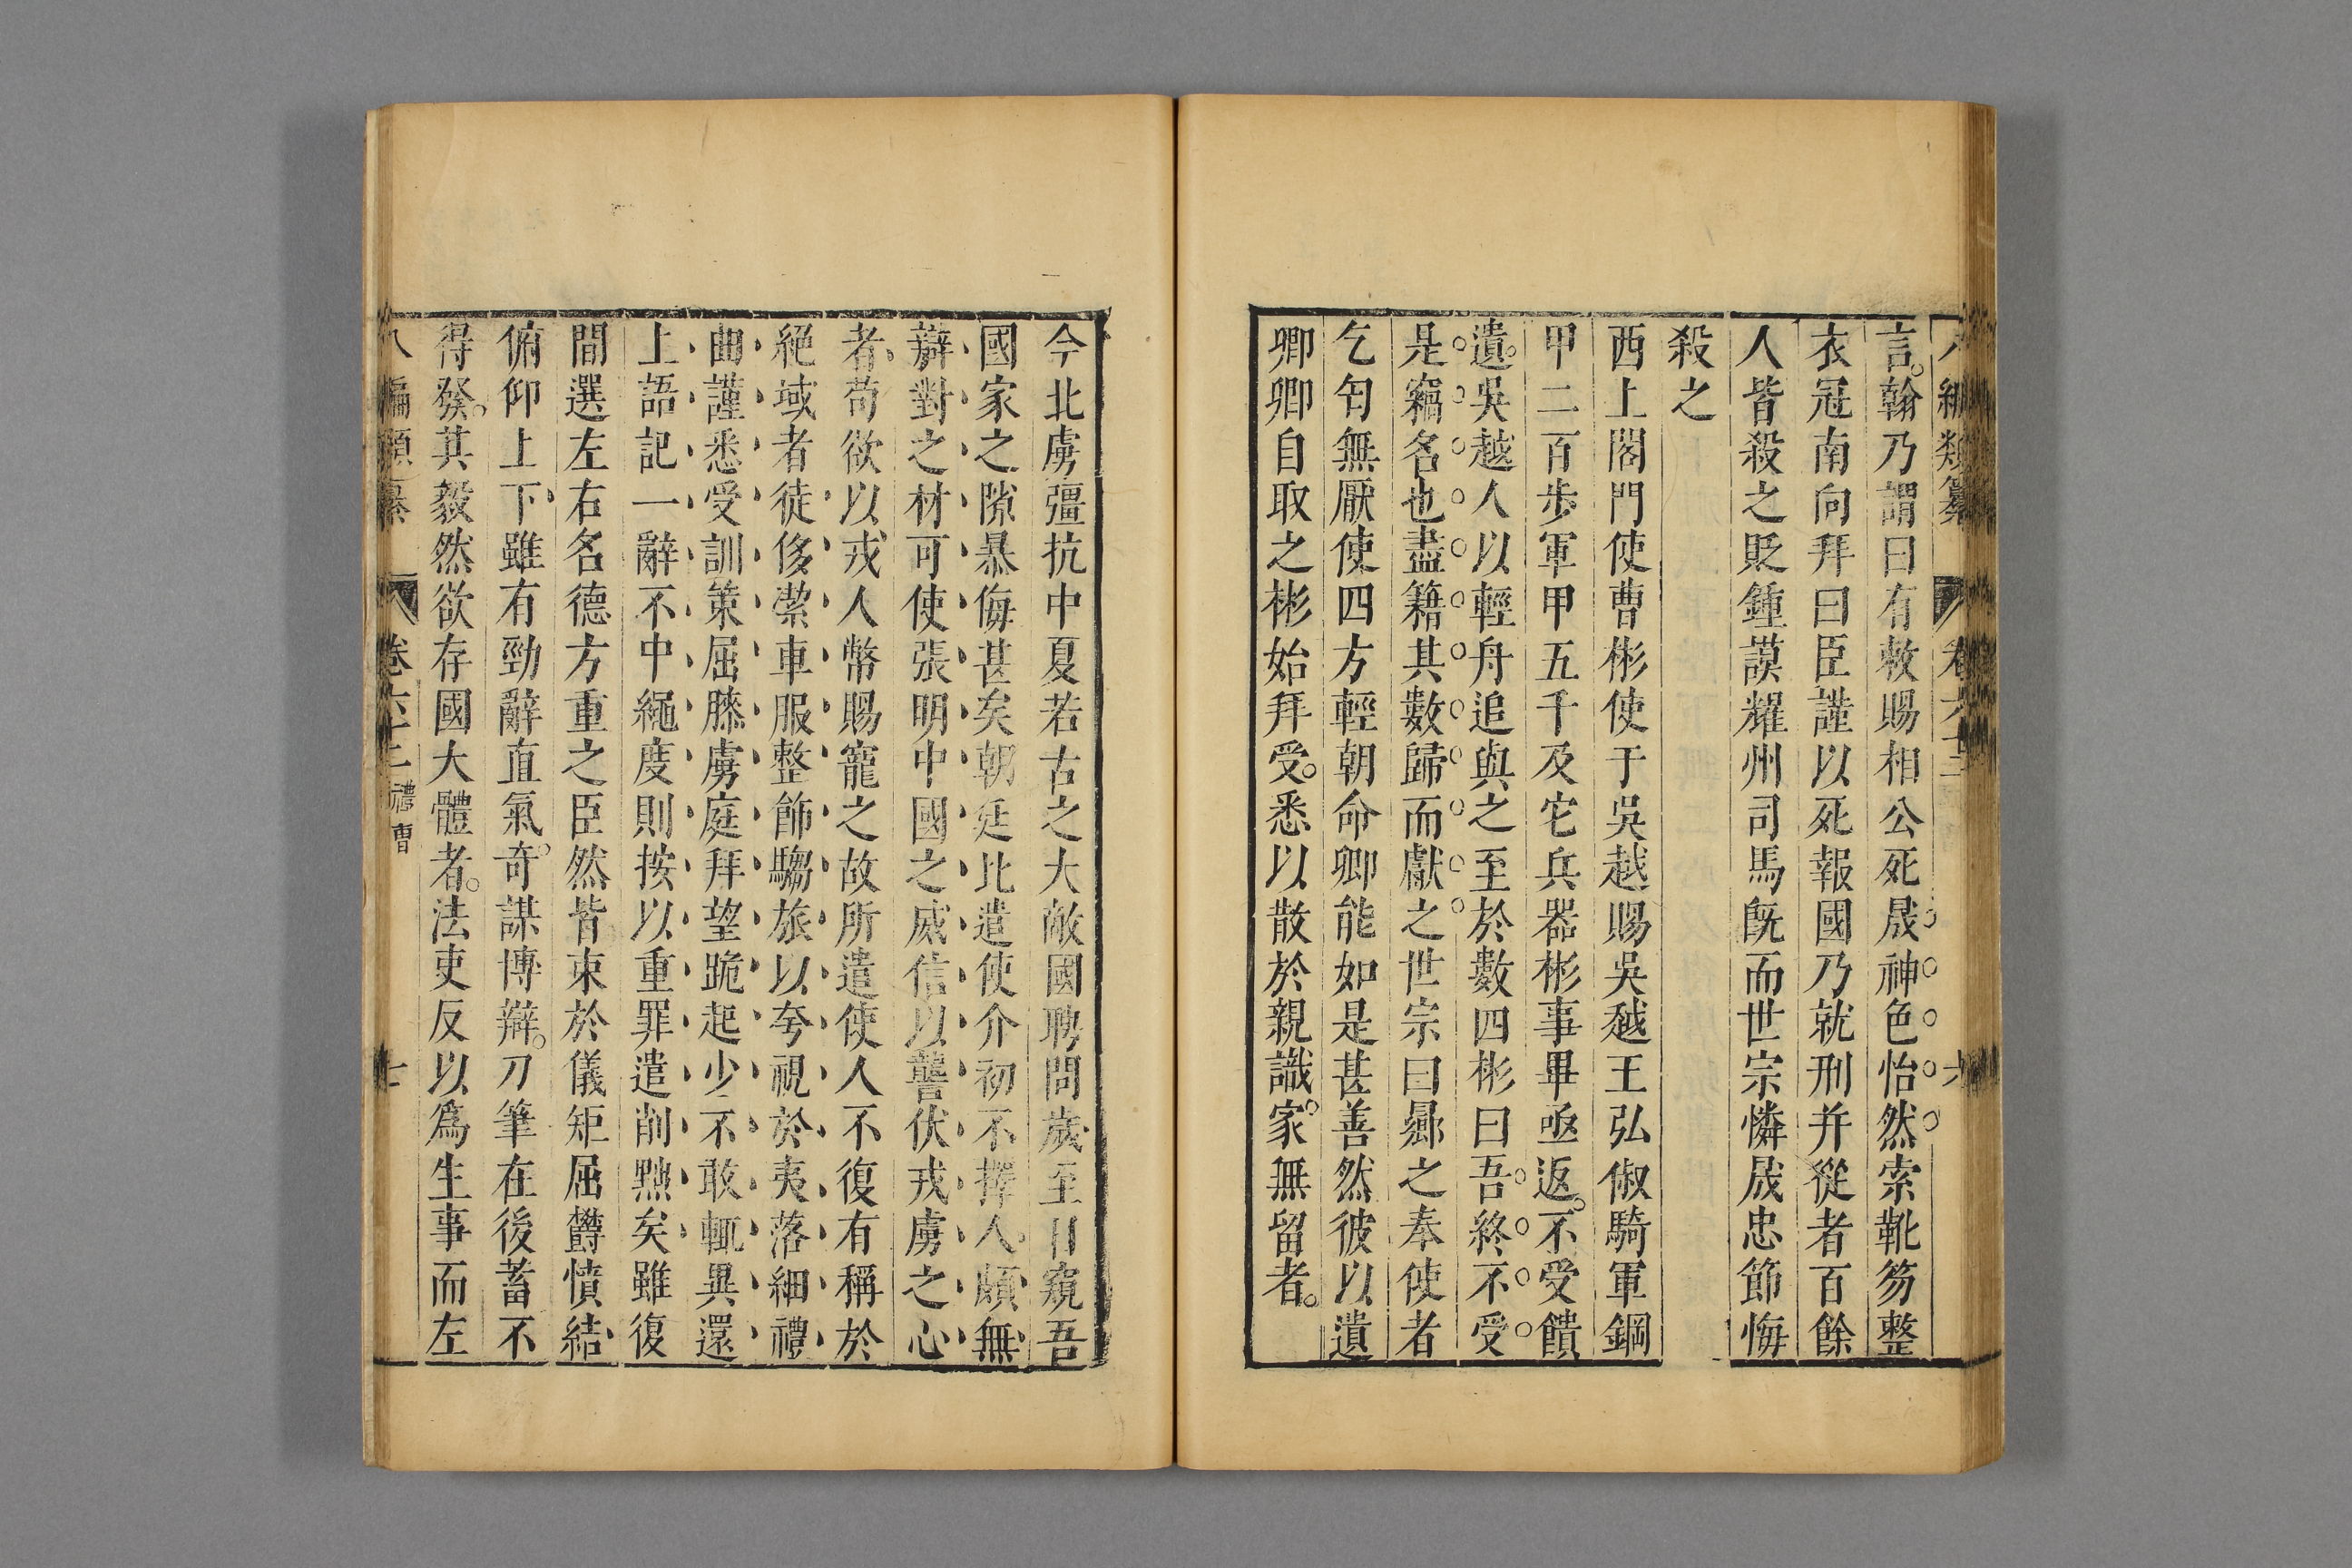 編類纂 卷六十二 六
言翰乃謂曰有敕賜相公死晟神色怡然索靴笏整
衣冠南向拜曰臣謹以死報國乃就刑并從者百餘
人皆殺之貶鍾謨耀州司馬旣而世宗憐晟忠節悔
殺之
西上閤門使曹彬使于吳越賜吳越王弘俶騎軍鋼
甲二百步軍甲五千及它兵器彬事畢亟返不受饋
遺吳越人以輕舟追與之至於數四彬曰吾終不受
是竊名也盡籍其數歸而獻之世宗曰曏之奉使者
乞匄無厭使四方輕朝命卿能如是甚善然彼以遺
卿卿自取之彬始拜受悉以散於親識家無留者
今北虜彊抗中夏若古之大敵國聘問歲至日窺吾
國家之隙暴侮甚矣朝廷比遣使介初不擇人頗無
辯對之材可使張明中國之威信以讋伏戎虜之心
者苟欲以戎人幣賜寵之故所遣使人不復有稱於
絕域者徒侈縈車服整飾騶旅以夸視於夷落細禮
曲謹悉受訓策屈膝虜庭拜望跪起少不敢輒異還
上語記一辭不中繩度則按以重罪遣削黜矣雖復
間選左右名德方重之臣然皆束於儀矩屈欝憤結
俯仰上下雖有勁辭直氣奇謀博辯刀筆在後蓄不
得發其毅然欲存國大體者法吏反以爲生事而左
八編類纂 卷六十二 禮曹 七